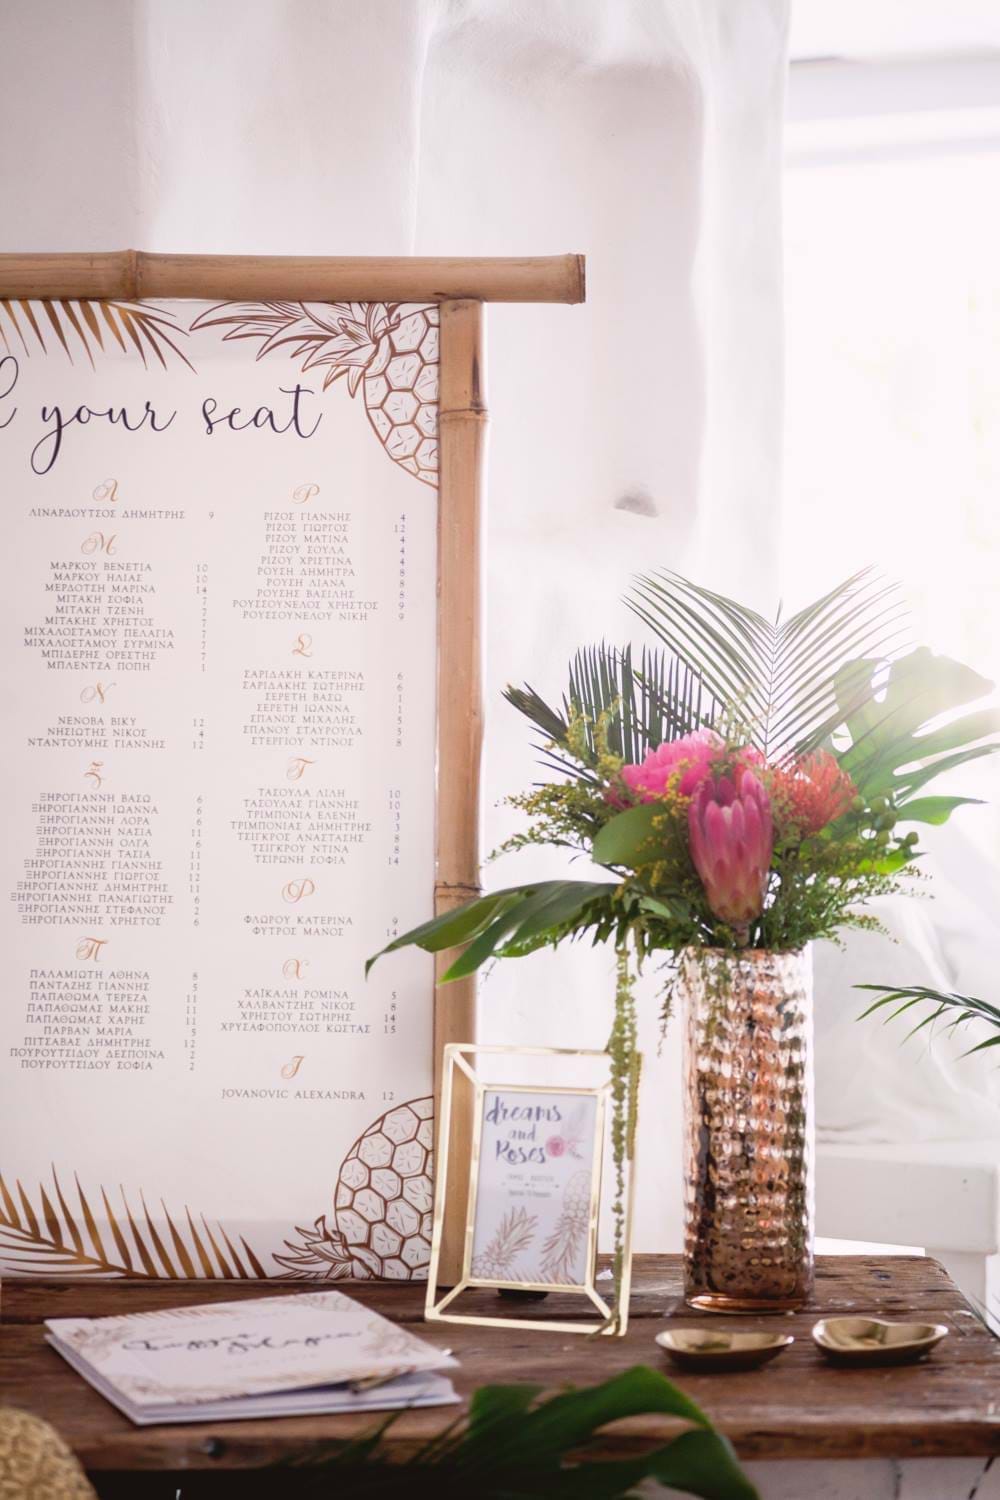 your seat
Λ
ΛΙΝΑΡΔΟΥΤΣΟΣ ΔΗΜΗΤΡΗΣ 9
Μ
ΜΑΡΚΟΥ ΒΕΝΕΤΙΑ 10
ΜΑΡΚΟΥ ΗΛΙΑΣ 10
ΜΕΡΔΟΤΣΗ ΜΑΡΙΝΑ 14
ΜΙΤΑΚΗ ΣΟΦΙΑ 7
ΜΙΤΑΚΗ ΤΖΕΝΗ 7
ΜΙΤΑΚΗΣ ΧΡΗΣΤΟΣ 7
ΜΙΧΑΛΟΣΤΑΜΟΥ ΠΕΛΑΓΙΑ 7
ΜΙΧΑΛΟΣΤΑΜΟΥ ΣΥΡΜΙΝΑ 7
ΜΠΙΔΕΡΗΣ ΟΡΕΣΤΗΣ 7
ΜΠΛΕΝΤΖΑ ΠΟΠΗ 1
Ν
ΝΕΝΟΒΑ ΒΙΚΥ 12
ΝΗΣΙΩΤΗΣ ΝΙΚΟΣ 4
ΝΤΑΝΤΟΥΜΗΣ ΓΙΑΝΝΗΣ 12
Ξ
ΞΗΡΟΓΙΑΝΝΗ ΒΑΣΩ 6
ΞΗΡΟΓΙΑΝΝΗ ΙΩΑΝΝΑ 6
ΞΗΡΟΓΙΑΝΝΗ ΛΟΡΑ 6
ΞΗΡΟΓΙΑΝΝΗ ΝΑΣΙΑ 11
ΞΗΡΟΓΙΑΝΝΗ ΟΛΓΑ 6
ΞΗΡΟΓΙΑΝΝΗ ΤΑΣΙΑ 11
ΞΗΡΟΓΙΑΝΝΗΣ ΓΙΑΝΝΗΣ 11
ΞΗΡΟΓΙΑΝΝΗΣ ΓΙΩΡΓΟΣ 12
ΞΗΡΟΓΙΑΝΝΗΣ ΔΗΜΗΤΡΗΣ 11
ΞΗΡΟΓΙΑΝΝΗΣ ΠΑΝΑΓΙΩΤΗΣ 6
ΞΗΡΟΓΙΑΝΝΗΣ ΣΤΕΦΑΝΟΣ 2
ΞΗΡΟΓΙΑΝΝΗΣ ΧΡΗΣΤΟΣ 6
Π
ΠΑΛΑΜΙΩΤΗ ΑΘΗΝΑ 8
ΠΑΝΤΑΖΗΣ ΓΙΑΝΝΗΣ 5
ΠΑΠΑΘΩΜΑ ΤΕΡΕΖΑ 11
ΠΑΠΑΘΩΜΑΣ ΜΑΚΗΣ 11
ΠΑΠΑΘΩΜΑΣ ΧΑΡΗΣ 11
ΠΑΡΒΑΝ ΜΑΡΙΑ 5
ΠΙΤΣΑΒΑΣ ΔΗΜΗΤΡΗΣ 12
ΠΟΥΡΟΥΤΣΙΔΟΥ ΔΕΣΠΟΙΝΑ 2
ΠΟΥΡΟΥΤΣΙΔΟΥ ΣΟΦΙΑ 2
Ρ
ΡΙΖΟΣ ΓΙΑΝΝΗΣ 4
ΡΙΖΟΣ ΓΙΩΡΓΟΣ 12
ΡΙΖΟΥ ΜΑΤΙΝΑ 4
ΡΙΖΟΥ ΣΟΥΛΑ 4
ΡΙΖΟΥ ΧΡΙΣΤΙΝΑ 4
ΡΟΥΣΗ ΔΗΜΗΤΡΑ 8
ΡΟΥΣΗ ΛΙΑΝΑ 8
ΡΟΥΣΗΣ ΒΑΣΙΛΗΣ 8
ΡΟΥΣΣΟΥΝΕΛΟΣ ΧΡΗΣΤΟΣ 9
ΡΟΥΣΣΟΥΝΕΛΟΥ ΝΙΚΗ 9
Σ
ΣΑΡΙΔΑΚΗ ΚΑΤΕΡΙΝΑ 6
ΣΑΡΙΔΑΚΗΣ ΣΩΤΗΡΗΣ 6
ΣΕΡΕΤΗ ΒΑΣΩ 1
ΣΕΡΕΤΗ ΙΩΑΝΝΑ 1
ΣΠΑΝΟΣ ΜΙΧΑΛΗΣ 5
ΣΠΑΝΟΥ ΣΤΑΥΡΟΥΛΑ 5
ΣΤΕΡΓΙΟΥ ΝΤΙΝΟΣ 8
Τ
ΤΑΣΟΥΛΑ ΛΙΛΗ 10
ΤΑΣΟΥΛΑΣ ΓΙΑΝΝΗΣ 10
ΤΡΙΜΠΟΝΙΑ ΕΛΕΝΗ 3
ΤΡΙΜΠΟΝΙΑΣ ΔΗΜΗΤΡΗΣ 3
ΤΣΙΓΚΡΟΣ ΑΝΑΣΤΑΣΗΣ 8
ΤΣΙΓΚΡΟΥ ΝΤΙΝΑ 8
ΤΣΙΡΩΝΗ ΣΟΦΙΑ 14
Φ
ΦΛΩΡΟΥ ΚΑΤΕΡΙΝΑ 9
ΦΥΤΡΟΣ ΜΑΝΟΣ 14
Χ
ΧΑΪΚΑΛΗ ΡΟΜΙΝΑ 5
ΧΑΛΒΑΝΤΖΗΣ ΝΙΚΟΣ 8
ΧΡΗΣΤΟΥ ΣΩΤΗΡΗΣ 14
ΧΡΥΣΑΦΟΠΟΥΛΟΣ ΚΩΣΤΑΣ 15
J
JOVANOVIC ALEXANDRA 12
dreams
and
Roses